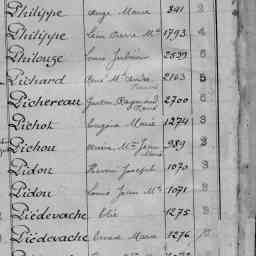 Philippe Ange Marie 341 2
Philippe Léon Pierre Mie 1793 4
Philouze Louis Julien 2539 5
Pichard René Mie 2163 5
Pichereau Gaston Raymond René 2700 6
Pichot Eugène Marie 1274 3
Pichou Mie Jean Marie 989 2
Pidou Pierre Joseph 1070 3
Pidou Louis Jean Mie 1071 3
Piédevache Elie 1275 3
Piédevache Marie 1276